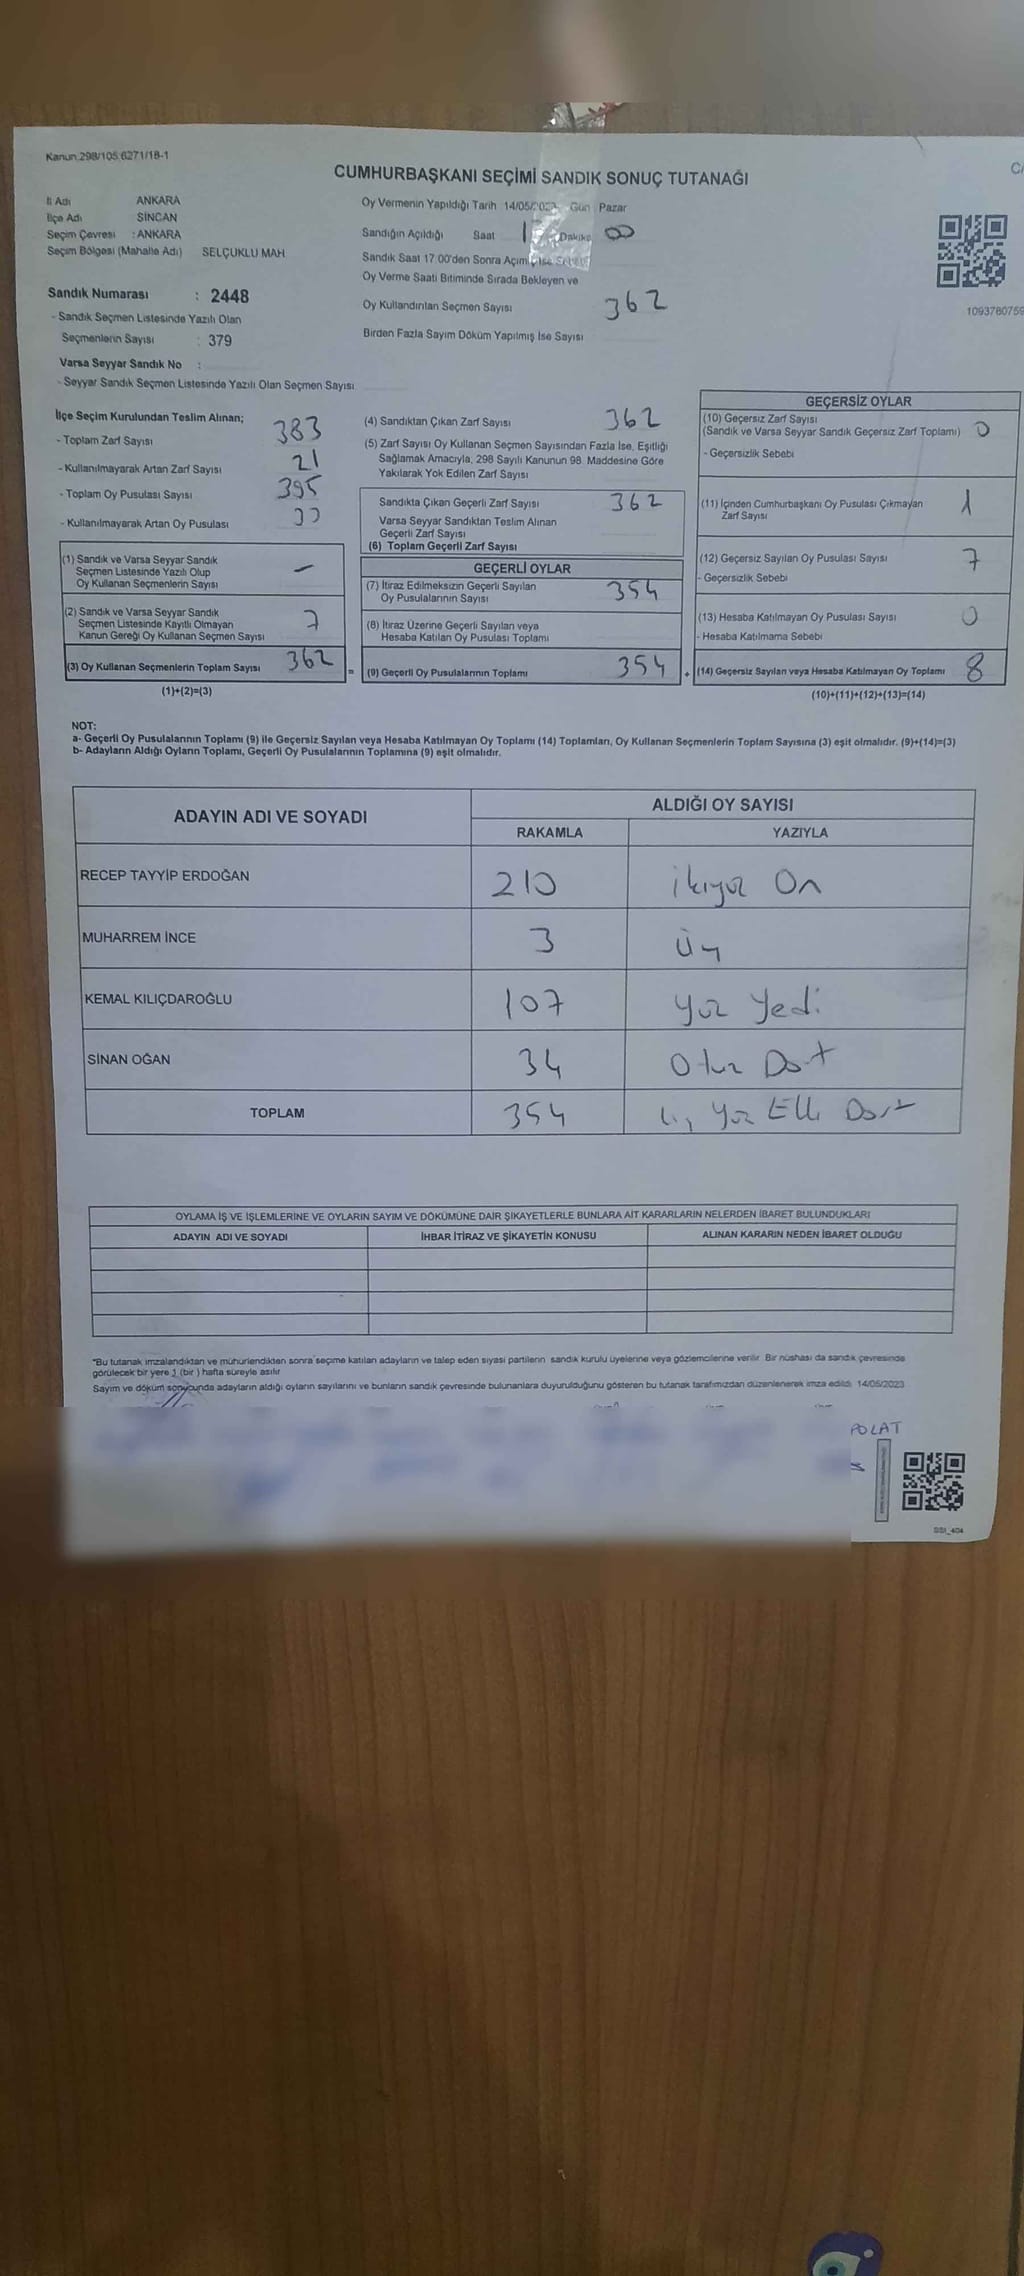 Kanun:298/105 6271/18-1
CUMHURBAŞKANI SEÇİMİ SANDIK SONUÇ TUTANAĞI
İl Adı ANKARA
İlçe Adı SİNCAN
Seçim Çevresi : ANKARA
Seçim Bölgesi (Mahalle Adı) SELÇUKLU MAH
Sandık Numarası : 2448
- Sandık Seçmen Listesinde Yazılı Olan
Seçmenlerin Sayısı : 379
Varsa Seyyar Sandık No :
- Seyyar Sandık Seçmen Listesinde Yazılı Olan Seçmen Sayısı
Oy Vermenin Yapıldığı Tarih 14/05/202 Gün Pazar
Sandığın Açıldığı Saat Dakika 00
Sandık Saat 17:00'den Sonra Açım
Oy Verme Saati Bitiminde Sırada Bekleyen ve
Oy Kullandırılan Seçmen Sayısı 362
Birden Fazla Sayım Döküm Yapılmış İse Sayısı
1093780759
İlçe Seçim Kurulundan Teslim Alınan;
- Toplam Zarf Sayısı 383
- Kullanılmayarak Artan Zarf Sayısı 21
- Toplam Oy Pusulası Sayısı 395
- Kullanılmayarak Artan Oy Pusulası 33
(1) Sandık ve Varsa Seyyar Sandık
Seçmen Listesinde Yazılı Olup
Oy Kullanan Seçmenlerin Sayısı -
(2) Sandık ve Varsa Seyyar Sandık
Seçmen Listesinde Kayıtlı Olmayan
Kanun Gereği Oy Kullanan Seçmen Sayısı 7
(3) Oy Kullanan Seçmenlerin Toplam Sayısı 362
(1)+(2)=(3)
(4) Sandıktan Çıkan Zarf Sayısı 362
(5) Zarf Sayısı Oy Kullanan Seçmen Sayısından Fazla İse, Eşitliği
Sağlamak Amacıyla, 298 Sayılı Kanunun 98. Maddesine Göre
Yakılarak Yok Edilen Zarf Sayısı
Sandıkta Çıkan Geçerli Zarf Sayısı 362
Varsa Seyyar Sandıktan Teslim Alınan
Geçerli Zarf Sayısı
(6) Toplam Geçerli Zarf Sayısı
GEÇERLİ OYLAR
(7) İtiraz Edilmeksizin Geçerli Sayılan
Oy Pusulalarının Sayısı 354
(8) İtiraz Üzerine Geçerli Sayılan veya
Hesaba Katılan Oy Pusulası Toplamı
= (9) Geçerli Oy Pusulalarının Toplamı 354
GEÇERSİZ OYLAR
(10) Geçersiz Zarf Sayısı
(Sandık ve Varsa Seyyar Sandık Geçersiz Zarf Toplamı) 0
- Geçersizlik Sebebi
(11) İçinden Cumhurbaşkanı Oy Pusulası Çıkmayan
Zarf Sayısı 1
(12) Geçersiz Sayılan Oy Pusulası Sayısı 7
- Geçersizlik Sebebi
(13) Hesaba Katılmayan Oy Pusulası Sayısı 0
- Hesaba Katılmama Sebebi
+ (14) Geçersiz Sayılan veya Hesaba Katılmayan Oy Toplamı 8
(10)+(11)+(12)+(13)=(14)
NOT:
a- Geçerli Oy Pusulalarının Toplamı (9) ile Geçersiz Sayılan veya Hesaba Katılmayan Oy Toplamı (14) Toplamları, Oy Kullanan Seçmenlerin Toplam Sayısına (3) eşit olmalıdır. (9)+(14)=(3)
b- Adayların Aldığı Oyların Toplamı, Geçerli Oy Pusulalarının Toplamına (9) eşit olmalıdır.
ADAYIN ADI VE SOYADI ALDIĞI OY SAYISI
RAKAMLA YAZIYLA
RECEP TAYYİP ERDOĞAN 210 ikiyüz On
MUHARREM İNCE 3 Üç
KEMAL KILIÇDAROĞLU 107 Yüz Yedi
SİNAN OĞAN 34 Otuz Dört
TOPLAM 354 Üç Yüz Elli Dört
OYLAMA İŞ VE İŞLEMLERİNE VE OYLARIN SAYIM VE DÖKÜMÜNE DAİR ŞİKAYETLERLE BUNLARA AİT KARARLARIN NELERDEN İBARET BULUNDUKLARI
ADAYIN ADI VE SOYADI İHBAR İTİRAZ VE ŞİKAYETİN KONUSU ALINAN KARARIN NEDEN İBARET OLDUĞU
"Bu tutanak imzalandıktan ve mühürlendikten sonra seçime katılan adayların ve talep eden siyasi partilerin sandık kurulu üyelerine veya gözlemcilerine verilir. Bir nüshası da sandık çevresinde
görülecek bir yere 1 (bir ) hafta süreyle asılır
Sayım ve döküm sonucunda adayların aldığı oyların sayılarını ve bunların sandık çevresinde bulunanlara duyurulduğunu gösteren bu tutanak tarafımızdan düzenlenerek imza edildi. 14/05/2023
POLAT
SSI_404